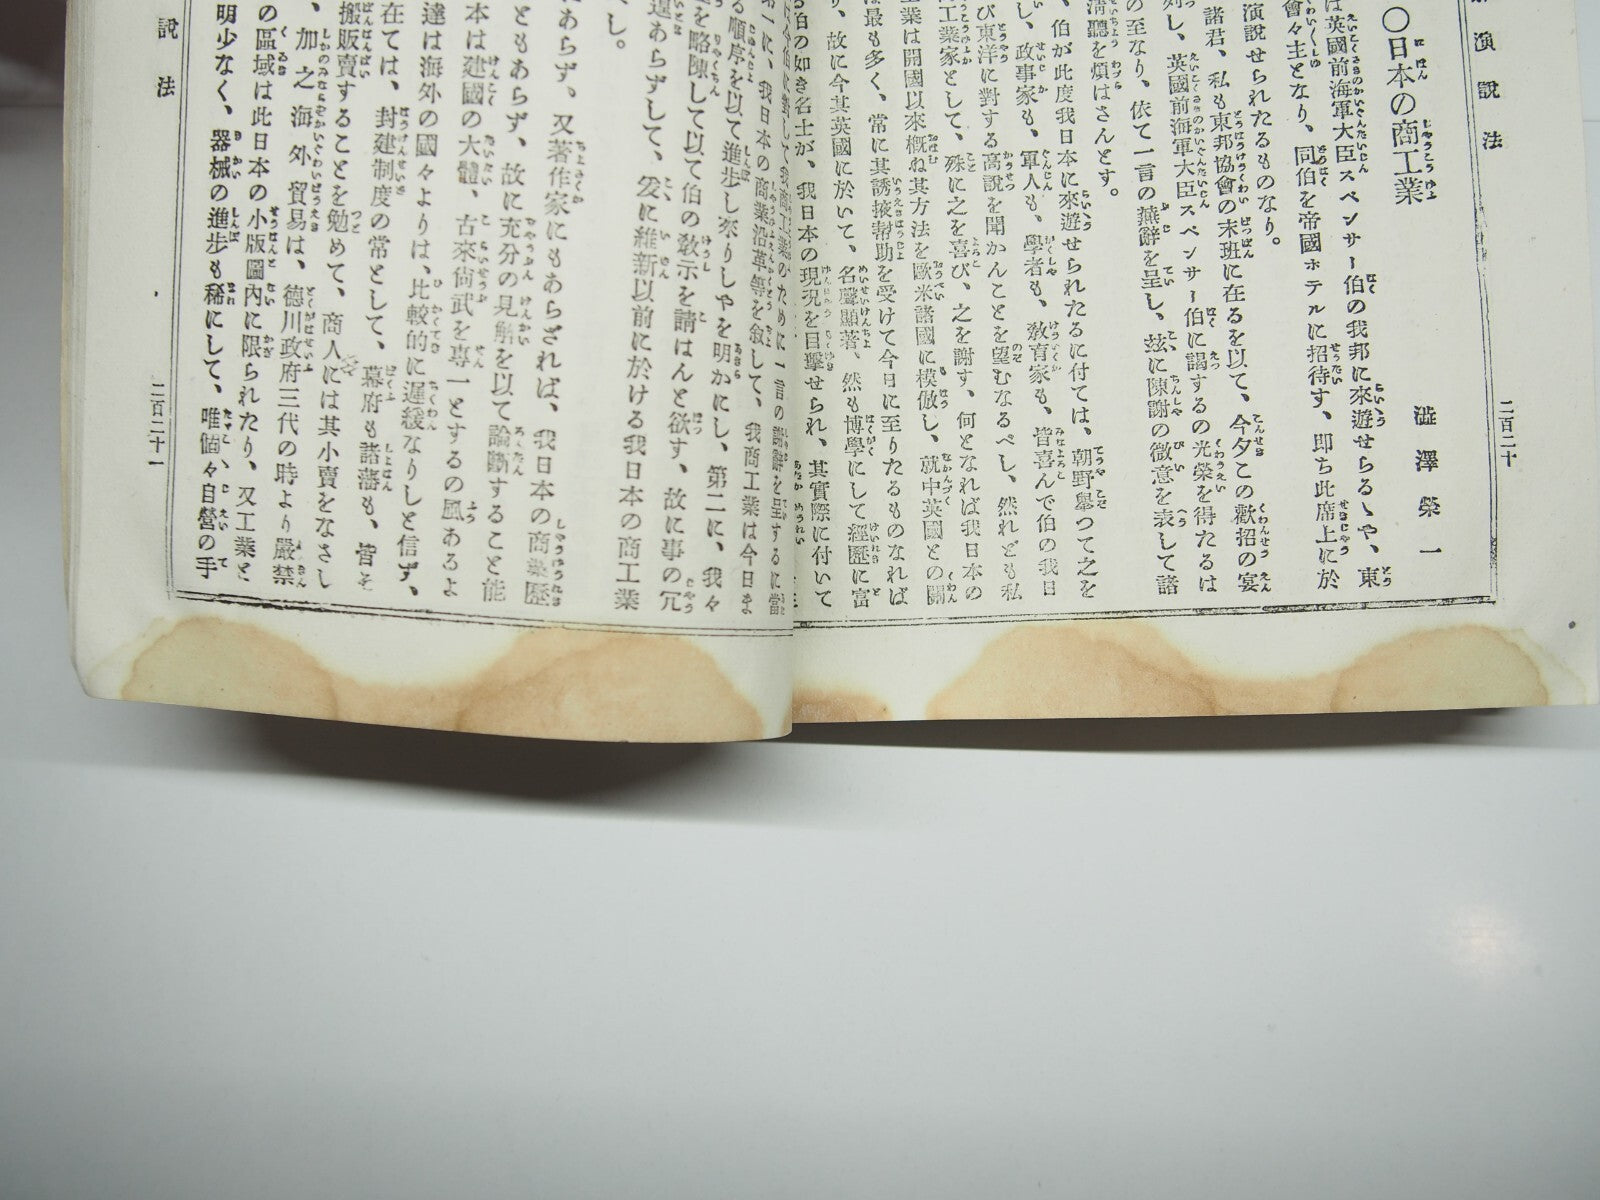 演說法
二百二十
○日本の商工業
澁澤榮一
は英國前海軍大臣スペンサー伯の我邦に來遊せらるゝや、東
會々主となり、同伯を帝國ホテルに招待す、即ち此席上に於
演說せられたるものなり。
諸君、私も東邦協會の末班に在るを以て、今夕この歡招の宴
列し、英國前海軍大臣スペンサー伯に謁するの光榮を得たるは
の至なり、依て一言の蕪辭を呈し、玆に陳謝の微意を表して諸
淸聽を煩はさんとす。
、伯が此度我日本に來遊せられたるに付ては、朝野擧つて之を
し、政事家も、軍人も、學者も、敎育家も、皆喜んで伯の我日
び東洋に對する高說を聞かんことを望むなるべし、然れども私
工業家として、殊に之を喜び、之を謝す、何となれば我日本の
業は開國以來概ね其方法を歐米諸國に模倣し、就中英國との關
は最も多く、常に其誘掖幇助を受けて今日に至りたるものなれば
り、故に今其英國に於いて、名聲顯著、然も博學にして經歷に富
る伯の如き名士が、我日本の現況を目擊せられ、其實際に付いて
我商工業のために一言の謝辭を呈するに當
第一に、我日本の商業沿革等を敍して、我商工業は今日ま
る順序を以て進步し來りしやを明かにし、第二に、我々
を略陳して以て伯の敎示を請はんと欲す、故に事の冗
遑あらずして、爰に維新以前に於ける我日本の商工業
べし。
にあらず、又著作家にもあらざれば、我日本の商業歷
ともあらず、故に充分の見解を以て論斷すること能
本は建國の大體、古來尙武を專一とするの風あるよ
達は海外の國々よりは、比較的に遲緩なりしと信ず、
在ては、封建制度の常として、幕府も諸藩も、皆そ
搬販賣することを勉めて、商人には其小賣をなさし
、加之海外貿易は、德川政府三代の時より嚴禁
の區域は此日本の小版圖內に限られたり、又工業と
明少なく、器械の進步も稀にして、唯箇々自營の手
說法
二百二十一